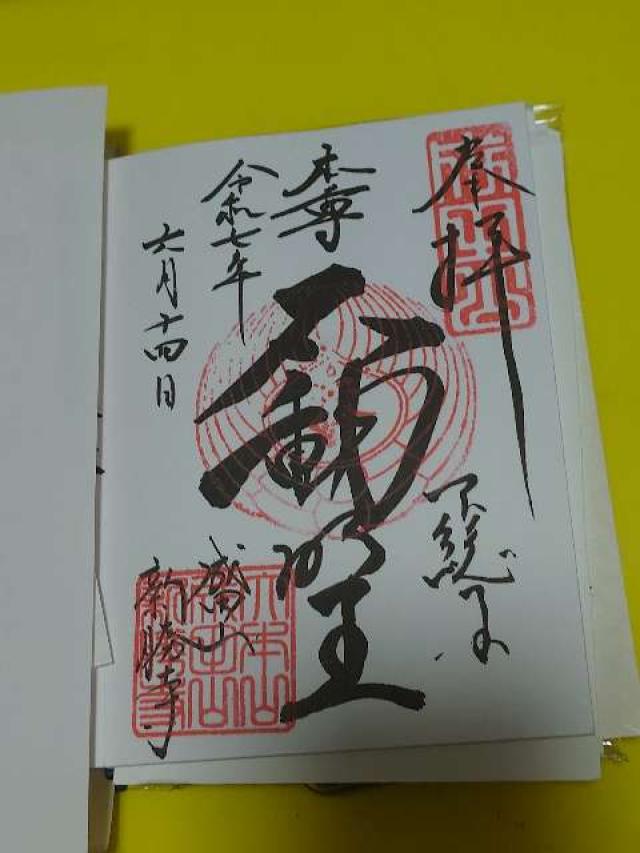 奉拝
下総国
本尊
不動明王
令和七年
六月十四日
成田山
新勝寺